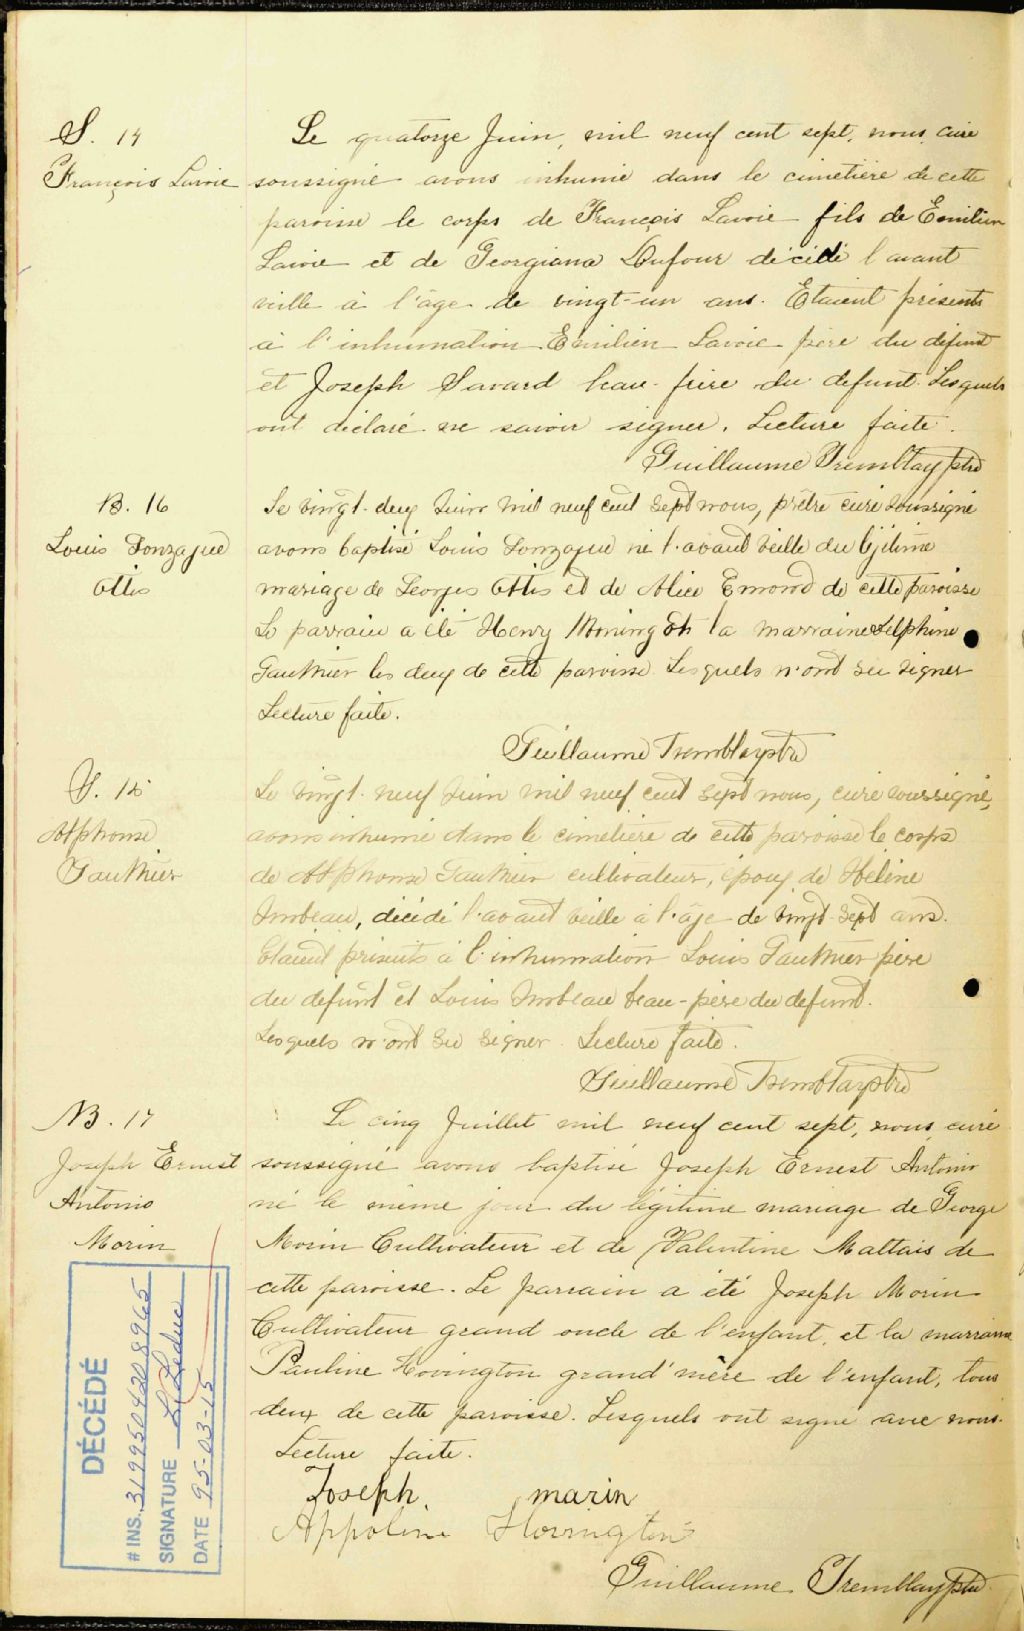 S. 14
François Lavoie
Le quatorze Juin, mil neuf cent sept, nous, curé
soussigné avons inhumé dans le cimetière de cette
paroisse le corps de François Lavoie fils de Emilien
Lavoie et de Georgiana Dufour décédé l'avant
veille à l'âge de vingt-un ans. Etaient présents
à l'inhumation Emilien Lavoie père du défunt
et Joseph Savard beau-frère du defunt. Lesquels
ont déclaré ne savoir signer. Lecture faite.
Guillaume Tremblay ptre
B. 16
Louis Gonzague
Ottis
Le vingt-deux Juin mil neuf cent sept nous, prêtre curé soussigné
avons baptisé Louis Gonzague né l'avant veille du légitime
mariage de Georges Ottis et de Alice Emond de cette paroisse
Le parrain a été Henry Moning et la marraine Delphine
Gauthier les deux de cette paroisse. Lesquels n'ont su signer
Lecture faite.
Guillaume Tremblay ptre
S. 15
Alphonse
Gauthier
Le vingt-neuf Juin mil neuf cent sept nous, curé soussigné,
avons inhumé dans le cimetière de cette paroisse le corps
de Alphonse Gauthier cultivateur, époux de Hélène
Imbeau, décédé l'avant veille à l'âge de vingt-sept ans.
Etaient présents à l'inhumation Louis Gauthier père
du défunt et Louis Imbeau beau-père du defunt.
Lesquels n'ont su signer. Lecture faite.
Guillaume Tremblay ptre
B. 17
Joseph Ernest
Antonio
Morin
Le cinq Juillet mil neuf cent sept, nous, curé
soussigné avons baptisé Joseph Ernest Antonio
né le même jour du légitime mariage de George
Morin Cultivateur et de Valentine Maltais de
cette paroisse. Le parrain a été Joseph Morin
Cultivateur grand oncle de l'enfant, et la marraine
Pauline Hovington grand'mère de l'enfant, tous
deux de cette paroisse. Lesquels ont signé avec nous.
Lecture faite.
Joseph marin
Appoline Hovington
Guillaume Tremblay ptre
DÉCÉDÉ
# INS. 3199504208965
SIGNATURE L. Leduc
DATE 95-03-15